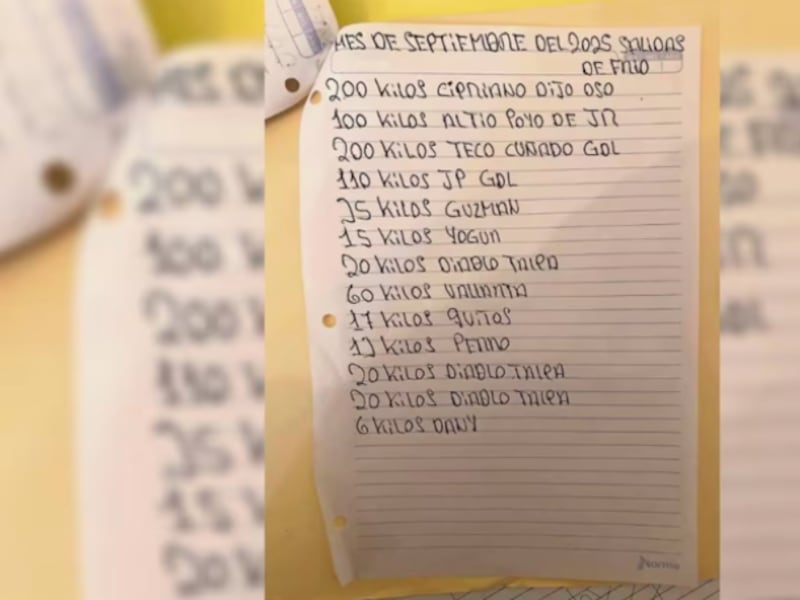 MES DE SEPTIEMBRE DEL 2025 SALIDAS
DE FRIO
200 KILOS CIPRIANO DIJO OSO
100 KILOS ALTIO POYO DE JR
200 KILOS TECO CUÑADO GDL
110 KILOS JP GDL
25 KILOS GUZMAN
15 KILOS YOGUR
20 KILOS DIABLO TALPA
60 KILOS VALLARTA
17 KILOS GUITOS
12 KILOS PERRO
20 KILOS DIABLO TALPA
20 KILOS DIABLO TALPA
6 KILOS DANY
Norma